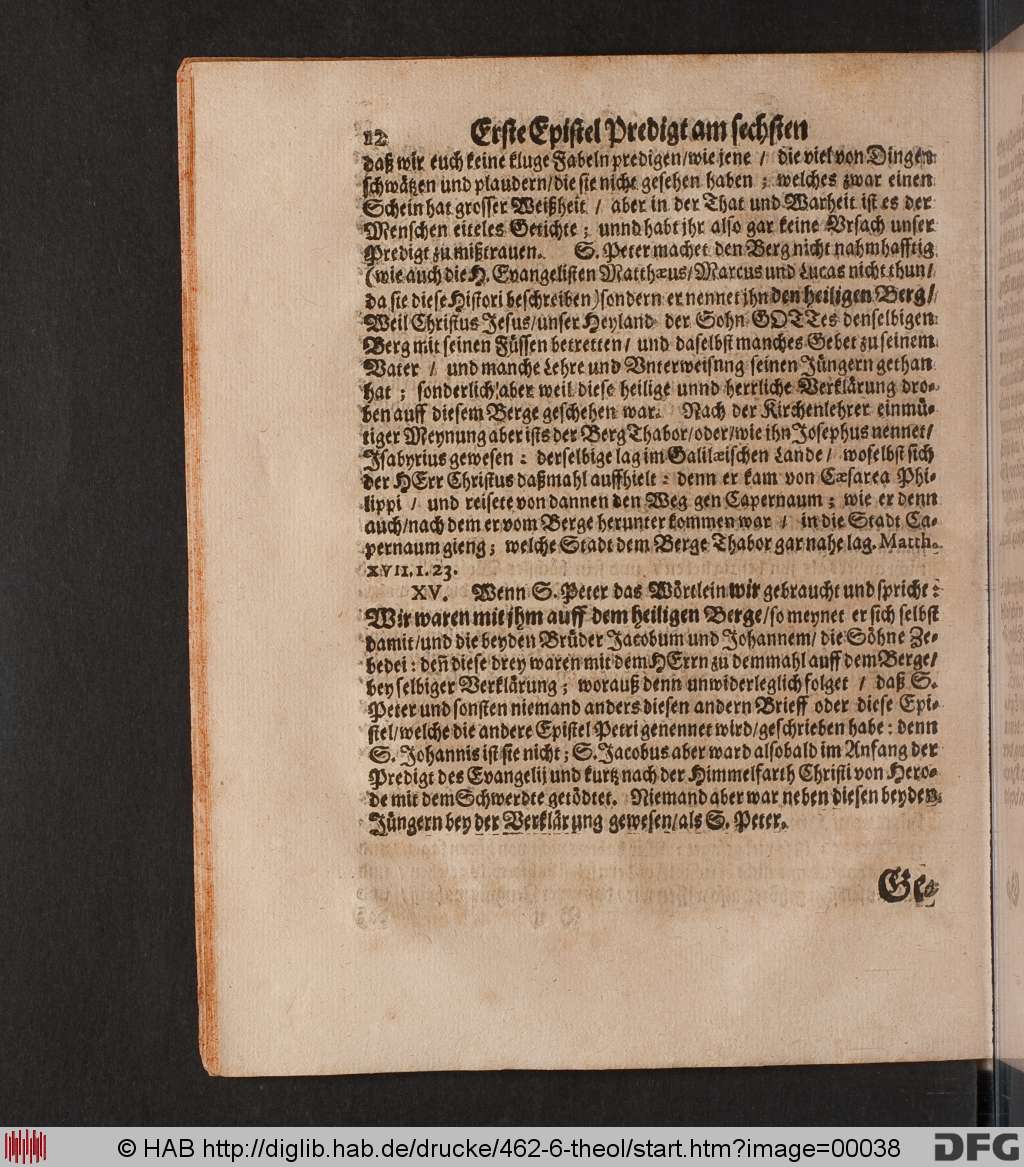 12 Erste Epistel Predigt am sechsten
daß wir euch keine kluge Fabeln predigen/wie jene / die viel von Dingen
schwätzen und plaudern/die sie nicht gesehen haben ; welches zwar einen
Schein hat grosser Weißheit / aber in der That und Warheit ist es der
Menschen eiteles Getichte ; unnd habt jhr also gar keine Vrsach unser
Predigt zu mißtrauen. S. Peter machet den Berg nicht nahmhafftig
(wie auch die H. Evangelisten Matthæus/Marcus und Lucas nicht thun/
da sie diese Histori beschreiben)sondern er nennet jhn den heiligen Berg/
Weil Christus Jesus/unser Heyland der Sohn GOTTes denselbigen
Berg mit seinen Füssen betretten/ und daselbst manches Gebet zu seinem
Vater / und manche Lehre und Vnterweisung seinen Jüngern gethan
hat ; sonderlich aber weil diese heilige unnd herrliche Verklärung dro-
ben auff diesem Berge geschehen war. Nach der Kirchenlehrer einmü-
tiger Meynung aber ists der Berg Thabor/oder/wie ihn Josephus nennet/
Jsabyrius gewesen : derselbige lag im Galilæischen Lande/ woselbst sich
der HErr Christus daßmahl auffhielt : denn er kam von Cæsarea Phi-
lippi / und reisete von dannen den Weg gen Capernaum ; wie er denn
auch/nach dem er vom Berge herunter kommen war / in die Stadt Ca-
pernaum gieng ; welche Stadt dem Berge Thabor gar nahe lag. Matth.
XVII. 1. 23.
XV. Wenn S. Peter das Wörtlein wir gebraucht und spricht :
Wir waren mit jhm auff dem heiligen Berge/so meynet er sich selbst
damit/und die beyden Brüder Jacobum und Johannem/ die Söhne Ze-
bedei : deñ diese drey waren mit dem HErrn zu demmahl auff dem Berge/
bey selbiger Verklärung ; worauß denn unwiderleglich folget / daß S.
Peter und sonsten niemand anders diesen andern Brieff oder diese Epi-
stel/welche die andere Epistel Petri genennet wird/geschrieben habe : denn
S. Johannis ist sie nicht ; S. Jacobus aber ward alsobald im Anfang der
Predigt des Evangelij und kurtz nach der Himmelfarth Christi von Hero-
de mit dem Schwerdte getödtet. Niemand aber war neben diesen beyden
Jüngern bey der Verklärung gewesen/als S. Peter.
Ge-
© HAB http://diglib.hab.de/drucke/462-6-theol/start.htm?image=00038
DFG